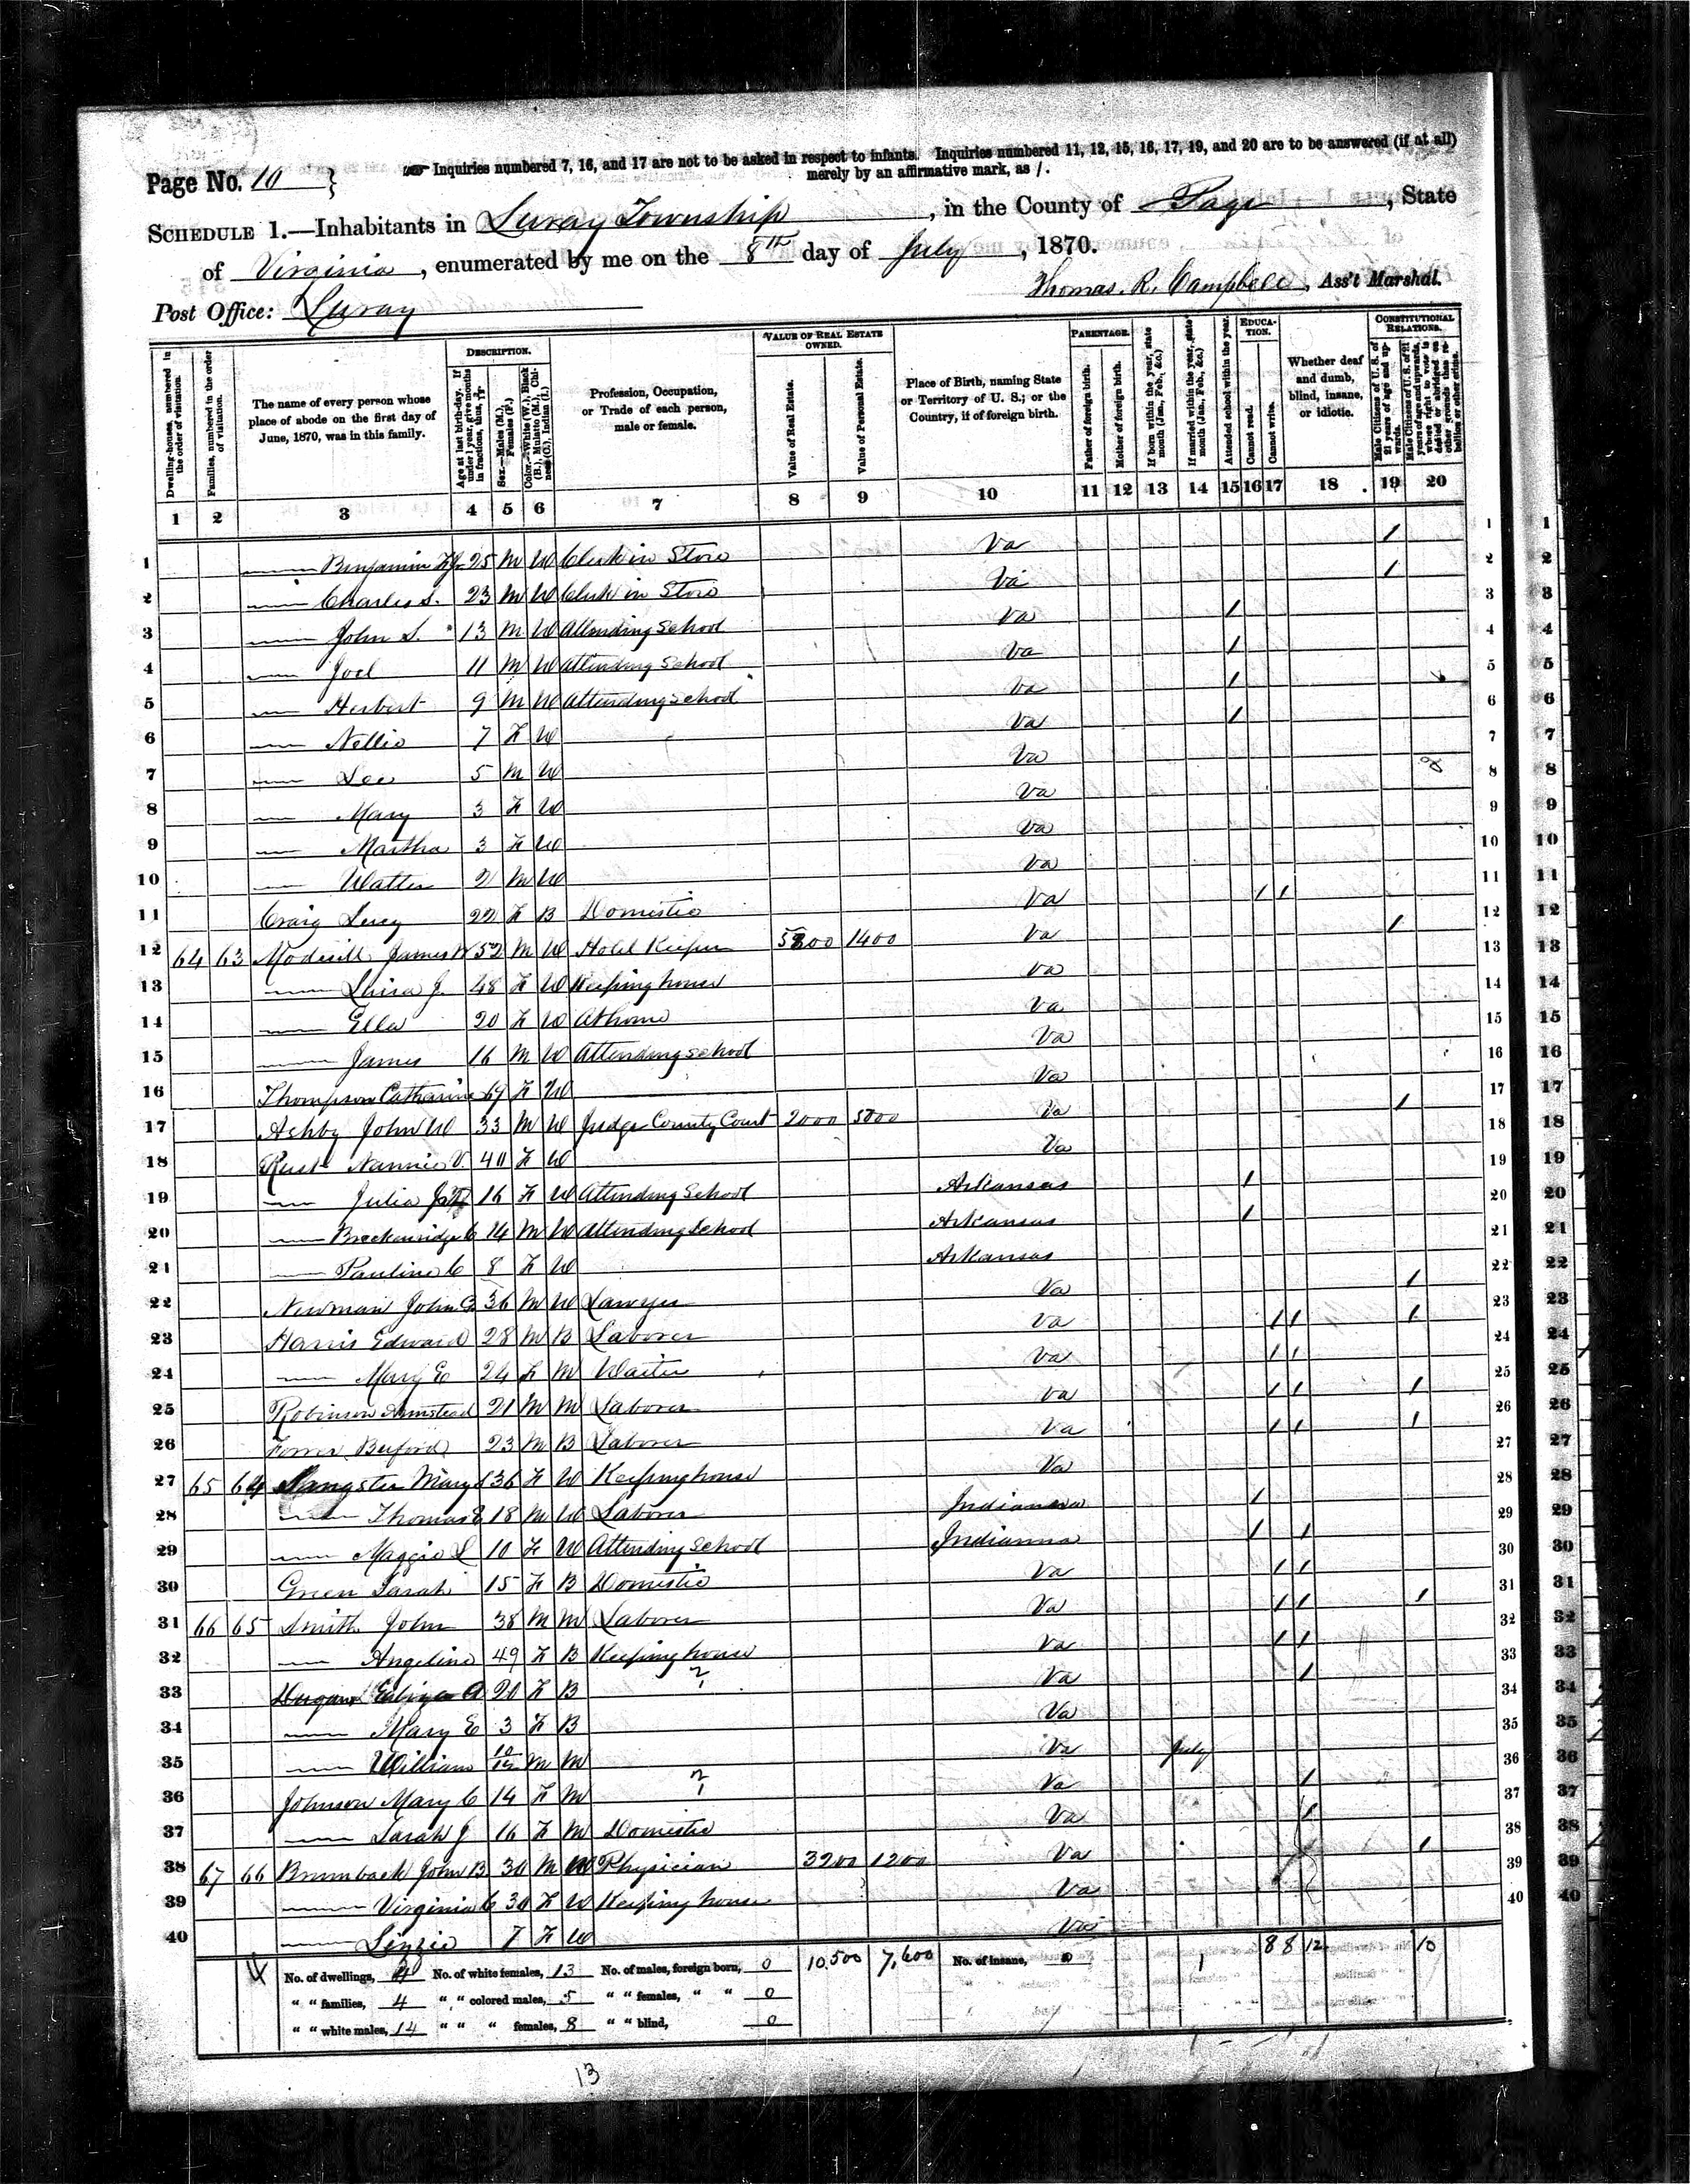 Page No. 10
Inquiries numbered 7, 16, and 17 are not to be asked in respect to infants. Inquiries numbered 11, 12, 15, 16, 17, 19, and 20 are to be answered (if at all)
merely by an affirmative mark, as /.
SCHEDULE 1.—Inhabitants in Luray Township, in the County of Page, State
of Virginia, enumerated by me on the 8th day of July, 1870.
Post Office: Luray
Thomas. R. Campbell, Ass't Marshal.
Dwelling-houses, numbered in the order of visitation.
Families, numbered in the order of visitation.
The name of every person whose place of abode on the first day of June, 1870, was in this family.
DESCRIPTION.
Age at last birth-day. If under 1 year, give months in fractions, thus, 3/12
Sex.—Males (M.), Females (F.)
Color.—White (W.), Black (B.), Mulatto (M.), Chinese (C.), Indian (I.)
Profession, Occupation, or Trade of each person, male or female.
VALUE OF REAL ESTATE OWNED.
Value of Real Estate.
Value of Personal Estate.
Place of Birth, naming State or Territory of U. S.; or the Country, if of foreign birth.
PARENTAGE.
Father of foreign birth.
Mother of foreign birth.
If born within the year, state month (Jan., Feb., &c.)
If married within the year, state month (Jan., Feb., &c.)
Attended school within the year.
EDUCATION.
Cannot read.
Cannot write.
Whether deaf and dumb, blind, insane, or idiotic.
CONSTITUTIONAL RELATIONS.
Male Citizens of U. S. of 21 years of age and upwards.
Male Citizens of U. S. of 21 years of age and upwards, whose right to vote is denied or abridged on other grounds than rebellion or other crime.
1 2 3 4 5 6 7 8 9 10 11 12 13 14 15 16 17 18 19 20
1 Benjamin 25 M W Clerk in Store Va / 1
2 Charles S. 23 M W Clerk in Store Va / 2
3 John S. 13 M W Attending School Va / 3
4 Joel 11 M W Attending School Va / 4
5 Herbert 9 M W Attending School Va / 5
6 Nellie 7 F W Va / 6
7 Lee 5 M W Va 7
8 Mary 3 F W Va 8
9 Martha 3 F W Va 9
10 Walter 2 M W Va 10
11 Craig Lucy 22 F B Domestic Va / / 11
12 64 63 Modesitt James W 52 M W Hotel Keeper 5300 1400 Va / 12
13 J. 48 F W Keeping house Va 13
14 Ella 20 F W At home Va 14
15 James 16 M W Attending School Va 15
16 Thompson Catharine F W Va 16
17 Ashby John W 33 M W Judge County Court 2000 5000 Va / 17
18 Rust Nannie V. 40 F W Va 18
19 Julia 16 F W Attending School Arkansas / 19
20 Breckenridge C 14 M W Attending School Arkansas / 20
21 Pauline C 8 F W Arkansas 21
22 Newman John 36 M W Lawyer Va / 22
23 Harris Edward 28 M B Laborer Va / / / 23
24 Mary E 24 F M Waiter Va / / 24
25 Robinson Armstead 21 M M Laborer Va / / / 25
26 Beuford 23 M B Laborer Va / / / 26
27 65 64 Mary 36 F W Keeping house Va 27
28 Thomas 18 M W Laborer Indianna / 28
29 Maggie L 10 F W Attending School Indianna / / 29
30 Green Sarah 15 F B Domestic Va / / 30
31 66 65 Smith John 38 M M Laborer Va / / / 31
32 Angeline 49 F B Keeping house Va / / 32
33 Dugans A 20 F B ? Va / 33
34 Mary E 3 F B Va 34
35 William 10/12 M M Va July 35
36 Johnson Mary C 14 F M ? Va / 36
37 Sarah J 16 F M Domestic Va / 37
38 67 66 Brumback John B 30 M W Physician 3200 1200 Va / 38
39 Virginia C 30 F W Keeping house Va 39
40 Lizzie 7 F W Va 40
No. of dwellings, 4 No. of white females, 13 No. of males, foreign born, 0 10,500 7,600 No. of insane, 0 1 8 8 12 10
" " families, 4 " " colored males, 5 " " females, " " 0
" " white males, 14 " " " females, 8 " " blind, 0
13